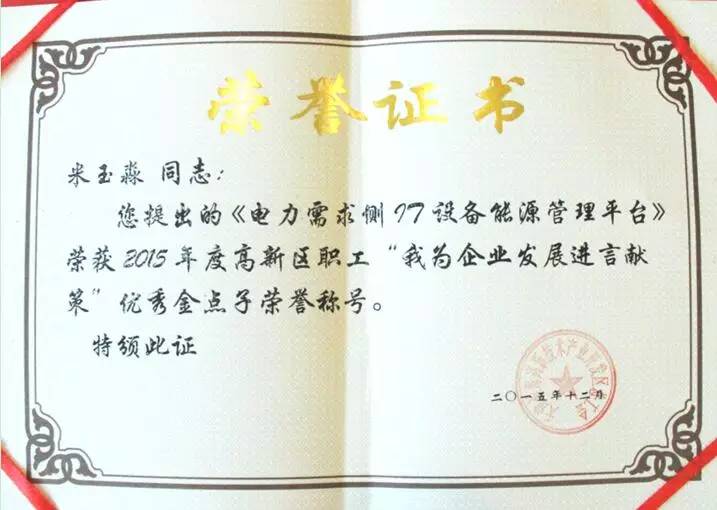 荣誉证书
米玉淼 同志：
您提出的《电力需求侧IT设备能源管理平台》
荣获2015年度高新区职工“我为企业发展进言献
策”优秀金点子荣誉称号。
特颁此证
二〇一五年十二月